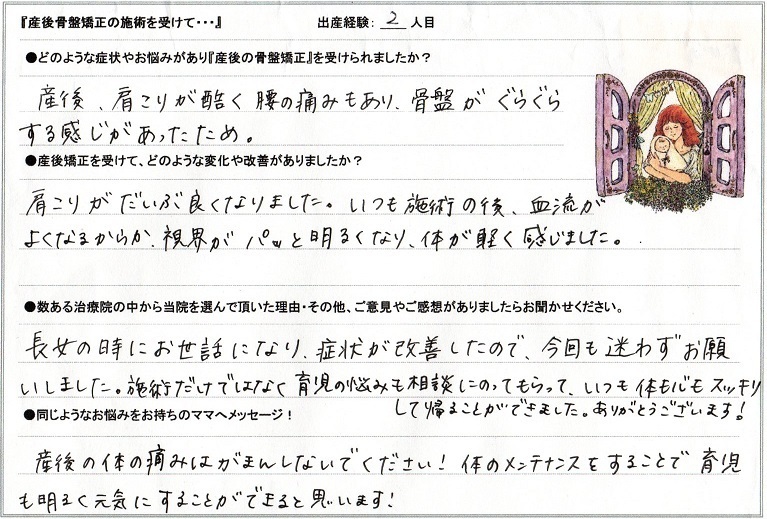 『産後骨盤矯正の施術を受けて・・・』 出産経験: 2 人目
●どのような症状やお悩みがあり『産後の骨盤矯正』を受けられましたか?
産後、肩こりが酷く腰の痛みもあり、骨盤がぐらぐら
する感じがあったため。
●産後矯正を受けて、どのような変化や改善がありましたか?
肩こりがだいぶ良くなりました。いつも施術の後、血流が
よくなるからか、視界がパッと明るくなり、体が軽く感じました。
●数ある治療院の中から当院を選んで頂いた理由・その他、ご意見やご感想がありましたらお聞かせください。
長女の時にお世話になり、症状が改善したので、今回も迷わずお願
いしました。施術だけではなく育児の悩みも相談にのってもらって、いつも体も心もスッキリ
して帰ることができました。ありがとうございます!
●同じようなお悩みをお持ちのママへメッセージ!
産後の体の痛みはがまんしないでください!体のメンテナンスをすることで育児
も明るく元気にすることができると思います!